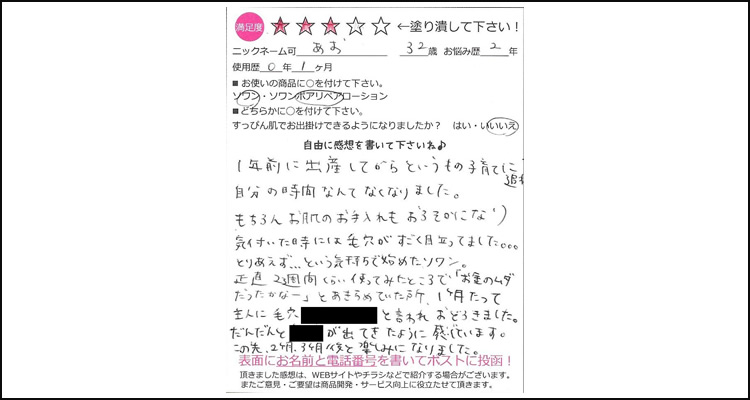 満足度 ★★★☆☆ ←塗り潰して下さい！
ニックネーム可 あお 32歳 お悩み歴 2年
使用歴 0年 1ヶ月
■お使いの商品に○を付けて下さい。
ソワン・ソワンポアリペアローション
■どちらかに○を付けて下さい。
すっぴん肌でお出掛けできるようになりましたか？ はい・いいえ
自由に感想を書いて下さいね♪
1年前に出産してからというもの子育てに追われ
自分の時間なんてなくなりました。
もちろんお肌のお手入れもおろそかになり
気付いた時には毛穴がすごく目立ってました。。。
とりあえず…という気持ちで始めたソワン。
正直2週間くらい使ってみたところで「お金のムダ
だったかなー」とあきらめていた所、1ヶ月たって
主人に毛穴 と言われおどろきました。
だんだんと が出てきたように感じています。
この先、2ヶ月、3ヶ月後と楽しみになりました。
表面にお名前と電話番号を書いてポストに投函！
頂きました感想は、WEBサイトやチラシなどで紹介する場合がございます。
またご意見・ご要望は商品開発・サービス向上に役立たせて頂きます。